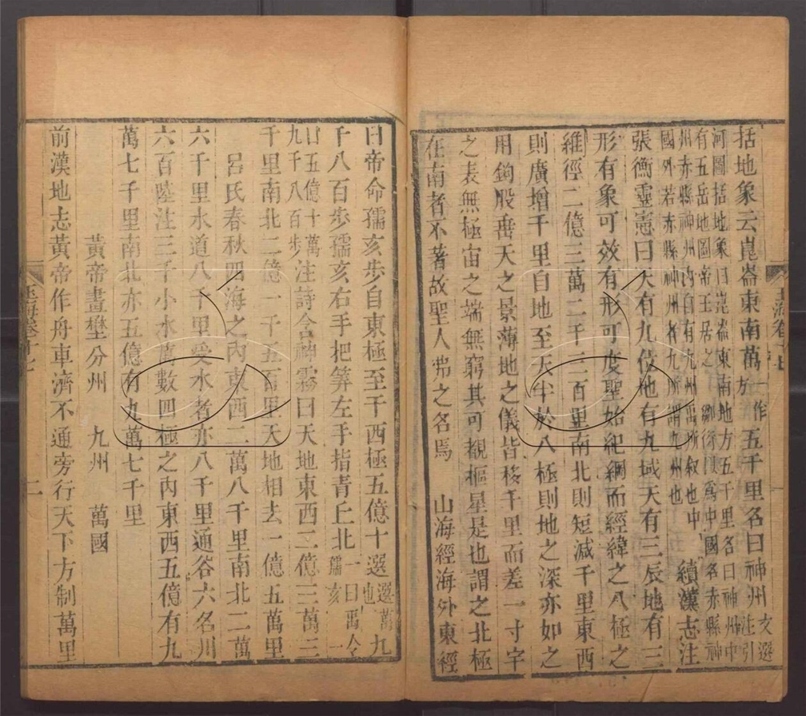 括地象云崑崙東南萬一作方五千里名曰神州文選注引
河圖括地象曰崑崙東南地方五千里名曰神州中
有五岳地圖帝王居之
州赤縣神州內自有九州禹所叙也中
國外若赤縣神州者九所謂九州也 續漢志注
張衡靈憲曰天有九位地有九域天有三辰地有三
形有象可效有形可度聖始紀綱而經緯之八極之
維徑二億三萬二千三百里南北則短減千里東西
則廣增千里自地至天半於八極則地之深亦如之
用鉤股垂天之景薄地之儀皆移千里而差一寸宇
之表無極宙之端無窮其可觀樞星是也謂之北極
在南者不著故聖人弗之名焉 山海經海外東經
曰帝命孺亥步自東極至于西極五億十選選萬也九
千八百步孺亥右手把筭左手指青丘北一曰禹令孺亥一
曰五億十萬九千八百步注詩含神霧曰天地東西二億三萬三
千里南北二億一千五百里天地相去一億五萬里
呂氏春秋四海之內東西二萬八千里南北二萬
六千里水道八千里受水者亦八千里通谷六名川
六百陸注三千小水萬數四極之內東西五億有九
萬七千里南北亦五億有九萬七千里
黃帝畫壄分州 九州 萬國
前漢地志黃帝作舟車濟不通旁行天下方制萬里
二